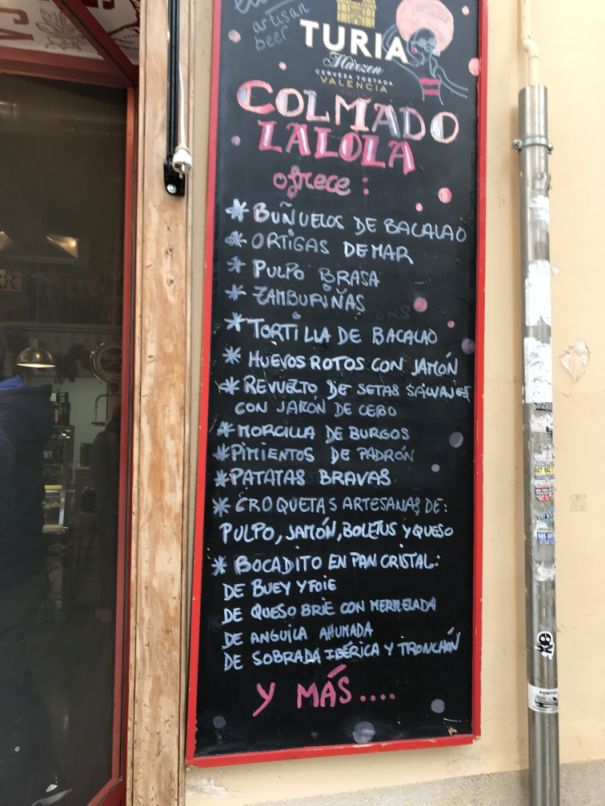 artisan
beer
TURIA
Märzen
CERVEZA TOSTADA
VALENCIA
COLMADO
LALOLA
ofrece:
* BUÑUELOS DE BACALAO
* ORTIGAS DE MAR
* PULPO BRASA
* ZAMBURIÑAS
* TORTILLA DE BACALAO
* HUEVOS ROTOS CON JAMÓN
* REVUELTO DE SETAS SALVAJES
CON JAMÓN DE CEBO
* MORCILLA DE BURGOS
* PIMIENTOS DE PADRÓN
* PATATAS BRAVAS
* CROQUETAS ARTESANAS DE:
PULPO, JAMÓN, BOLETUS Y QUESO
* BOCADITO EN PAN CRISTAL:
DE BUEY Y FOIE
DE QUESO BRIE CON MERMELADA
DE ANGUILA AHUMADA
DE SOBRADA IBÉRICA Y TRONCHÓN
Y MÁS....